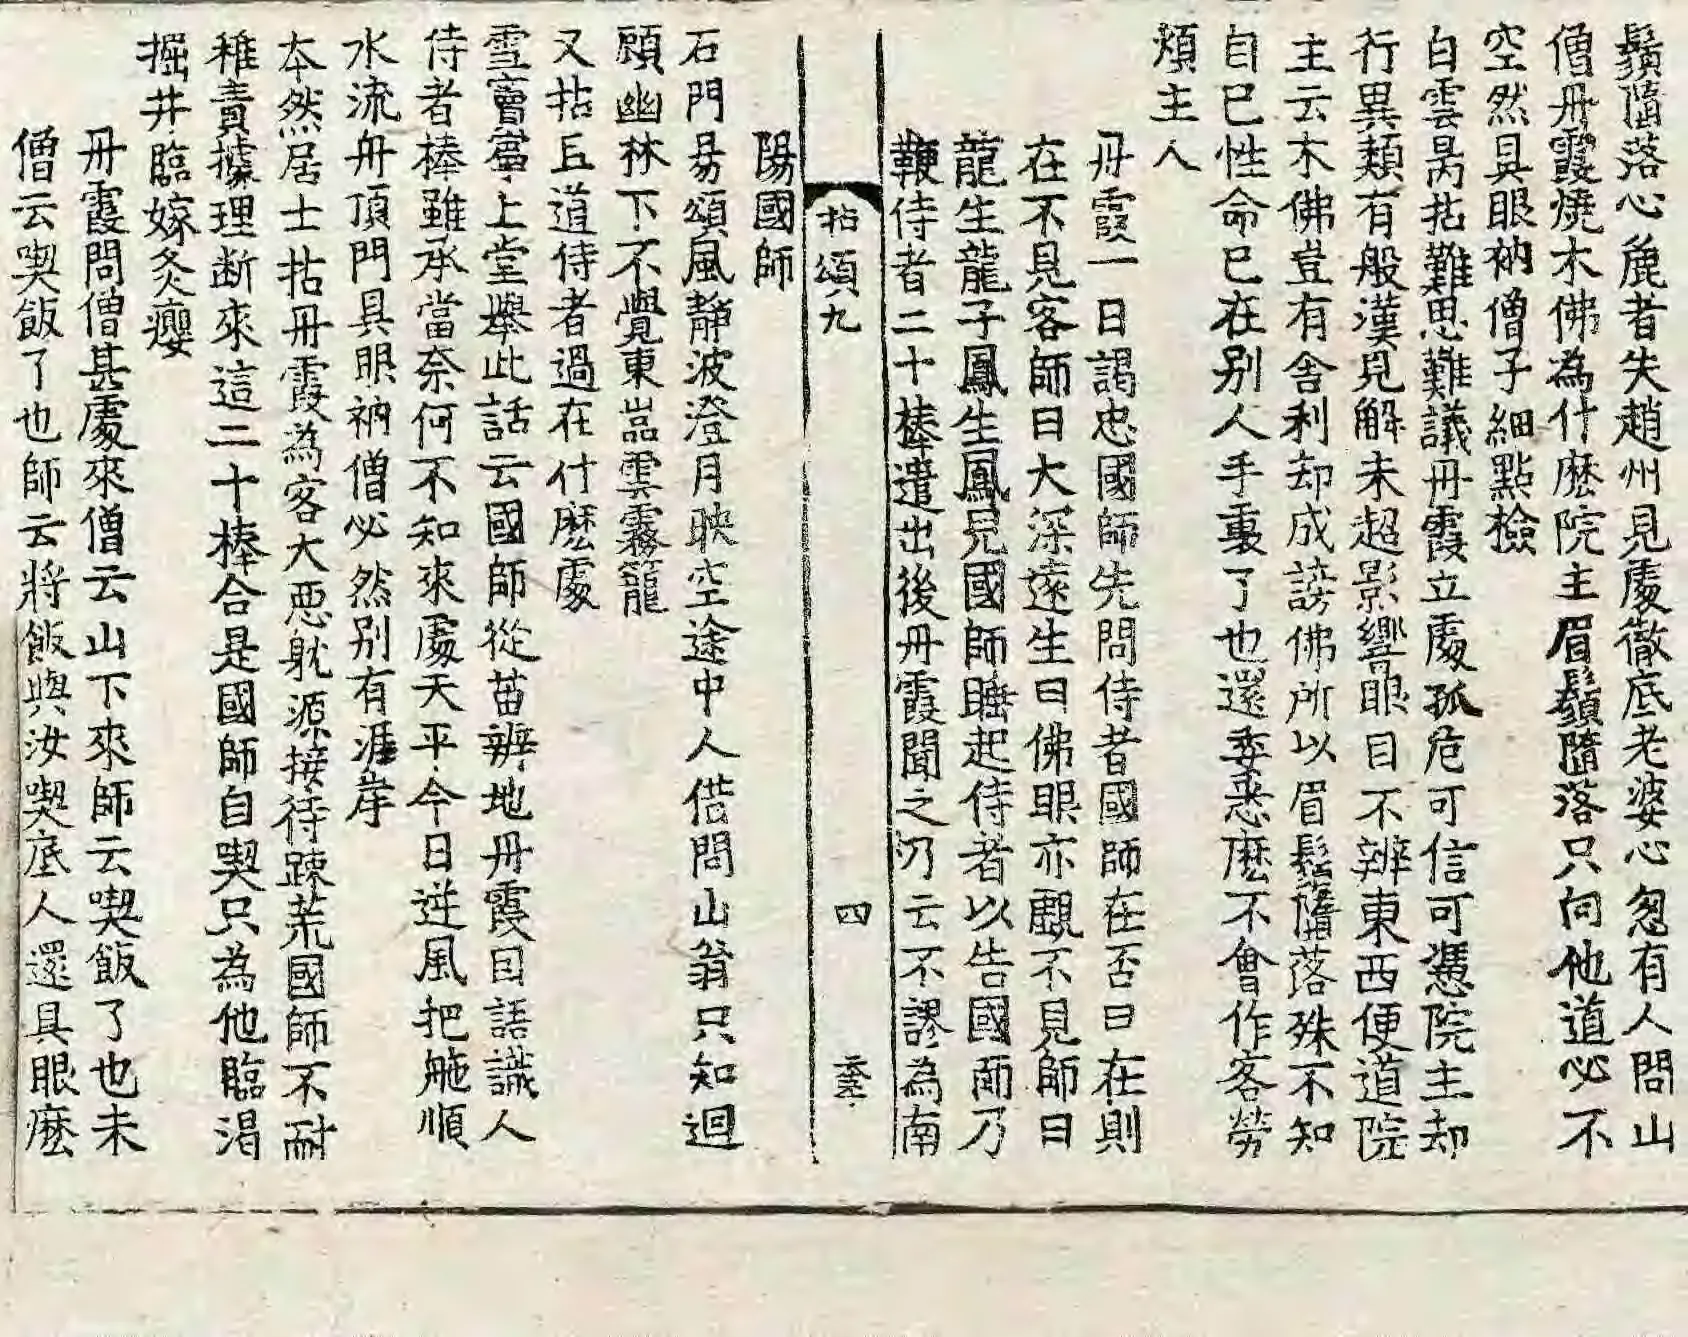 鬚墮落心麁者失趙州見處徹底老婆心忽有人問山
僧丹霞燒木佛為什麽院主眉鬚隨落只向他道必不
空然具眼衲僧子細點檢
白雲昺拈難思難議丹霞立處孤危可信可憑院主却
行異類有般漢見解未超影響眼目不辨東西便道院
主云木佛豈有舍利却成謗佛所以眉鬚墮落殊不知
自已性命已在别人手裏了也還委悉麽不會作客勞
煩主人
丹霞一日謁忠國師先問侍者國師在否曰在則
在不見客師曰大深遠生曰佛眼亦覷不見師曰
龍生龍子鳳生鳳兒國師睡起侍者以告國師乃
鞭侍者二十棒遣出後丹霞聞之乃云不謬為南
拈頌九 四
陽國師
石門易頌風靜波澄月映空途中人借問山翁只知迴
顧幽林下不覺東嵓雲霧籠
又拈且道侍者過在什麽處
雪竇寗上堂舉此話云國師從苗辨地丹霞因語識人
侍者棒雖承當奈何不知來處天平今日逆風把柂順
水流舟頂門具眼衲僧必然别有涯岸
本然居士拈丹霞為客大惡躭源接待踈荒國師不耐
稚責據理断來這二十棒合是國師自喫只為他臨渇
掘井臨嫁灸癭
丹霞問僧甚處來僧云山下來師云喫飯了也未
僧云喫飯了也師云將飯與汝喫底人還具眼麽